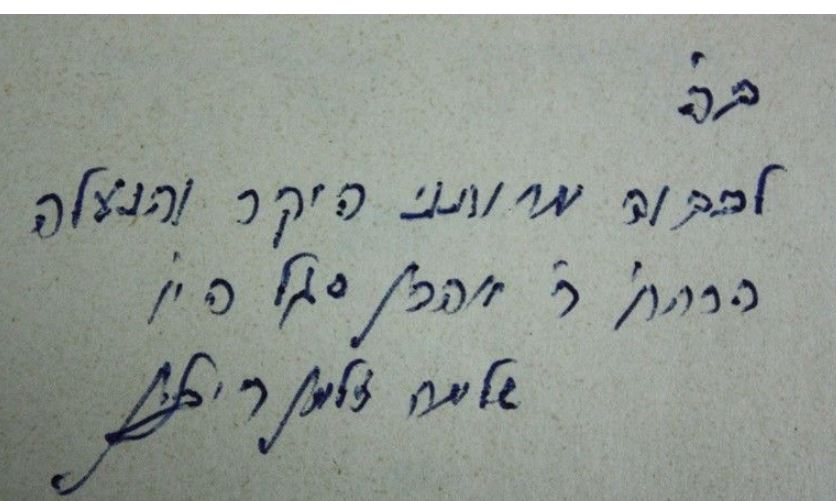 ב"ה
לכבוד מחותני היקר והנעלה
הרה"ח ר' אהרן סגל הי"ו
שלמה זלמן ריבלין